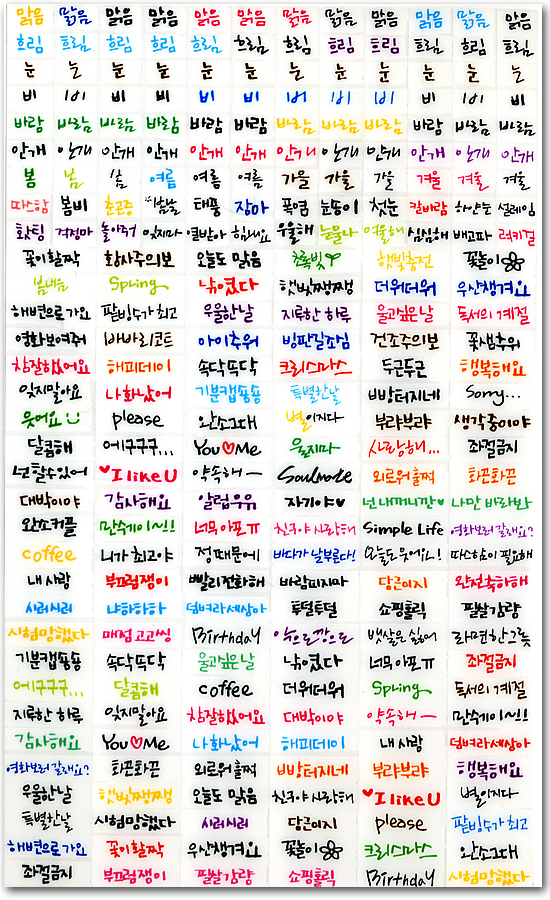 맑음 맑음 맑음 맑음 맑음 맑음 맑음 맑음 맑음 맑음 맑음 맑음
흐림 흐림 흐림 흐림 흐림 흐림 흐림 흐림 흐림 흐림 흐림 흐림
눈 눈 눈 눈 눈 눈 눈 눈 눈 눈 눈 눈
비 비 비 비 비 비 비 비 비 비 비 비
바람 바람 바람 바람 바람 바람 바람 바람 바람 바람 바람 바람
안개 안개 안개 안개 안개 안개 안개 안개 안개 안개 안개 안개
봄 봄 봄 여름 여름 여름 가을 가을 가을 겨울 겨울 겨울
따스함 봄비 춘곤증 태풍 장마 폭염 눈송이 첫눈 칼바람 하얀눈 설레임
홧팅 걱정마 놀아줘 잊지마 열받아 힘내요 우울해 눈물나 여울해 심심해 배고파 럭키걸
꽃이활짝 황사주의보 오늘도 맑음 초록빛 햇빛충전 꽃놀이
봄내음 Spring 낚였다 햇빛쨍쨍 더워더워 우산챙겨요
해변으로 가요 팥빙수가 최고 우울한날 지루한 하루 울고싶은날 독서의 계절
영화보여줘 바바리코트 아이추워 빙판길조심 건조주의보 꽃샘추위
참잘했어요 해피데이 속닥뚝닥 크리스마스 두근두근 행복해요
잊지말아요 나화났어 기분캡숑숑 특별한날 비밤터지네 Sorry...
웃어요 please 완소그대 별이지다 부랴부랴 생각중이야
달콤해 에구구구... You♡Me 울지마 사랑해... 좌절금지
넌 할수있어 ♥I like U 약속해ㅡ Soulmate 외로워 훌쩍 화끈화끈
대박이야 감사해요 알럽우유 자기야♥ 넌 내꺼니깐♡ 나만 바라봐
완쏘커플 만쉐이~!! 너무아포ㅠ 친구야 사랑해 Simple Life 영화보러 갈래요?
coffee 니가 최고야 정때문에 바다가 날부른다! 오늘도 웃어요! 따스함이 필요해
내 사랑 부끄럼쟁이 빨랑 전화해 바람피지마 당근이지 완전축하해
시러시러 냐하하하 덤벼라세상아 투덜투덜 쇼핑홀릭 필살감량
시험망했다 매점 고고씽 Birthday 앞으로갓으로 뱃살은 싫어 라면한그릇
기분캡숑숑 속닥뚝닥 울고싶은날 낚였다 너무 아포ㅠ 좌절금지
에구구구... 달콤해 coffee 더워더워 Spring 독서의 계절
지루한 하루 잊지말아요 참잘했어요 대박이야 약속해ㅡ 만쉐이~!!
감사해요 You♡Me 나화났어 해피데이 내 사랑 덤벼라세상아
영화보러 갈래요? 화끈화끈 외로워 훌쩍 비밤터지네 부랴부랴 행복해요
우울한날 햇빛쨍쨍 오늘도 맑음 친구야 사랑해 ♥I like U 별이지다
특별한날 시험망했다 시러시러 당근이지 please 팥빙수가 최고
해변으로 가요 꽃이활짝 우산챙겨요 꽃놀이 크리스마스 완소그대
좌절금지 부끄럼쟁이 필살감량 쇼핑홀릭 Birthday 시험망했다